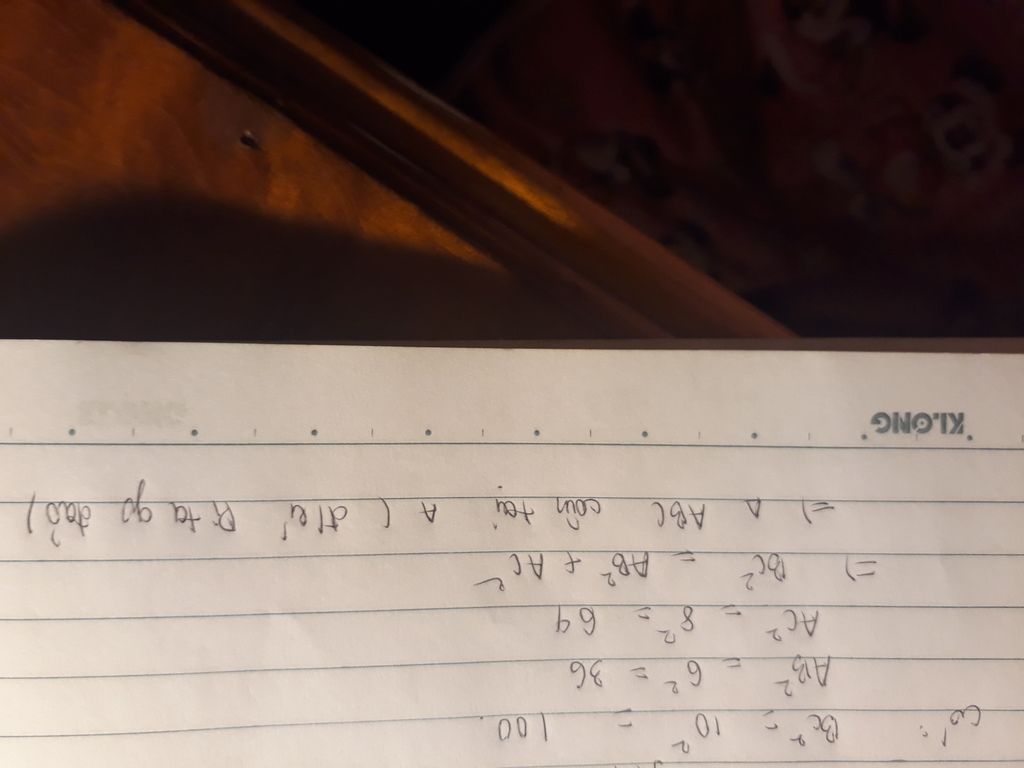 Có: BC² = 10² = 100.
AB² = 6² = 36
AC² = 8² = 64
=) BC² = AB² + AC²
=) Δ ABC cân tại A ( đlí Pi ta go đảo )
KLONG